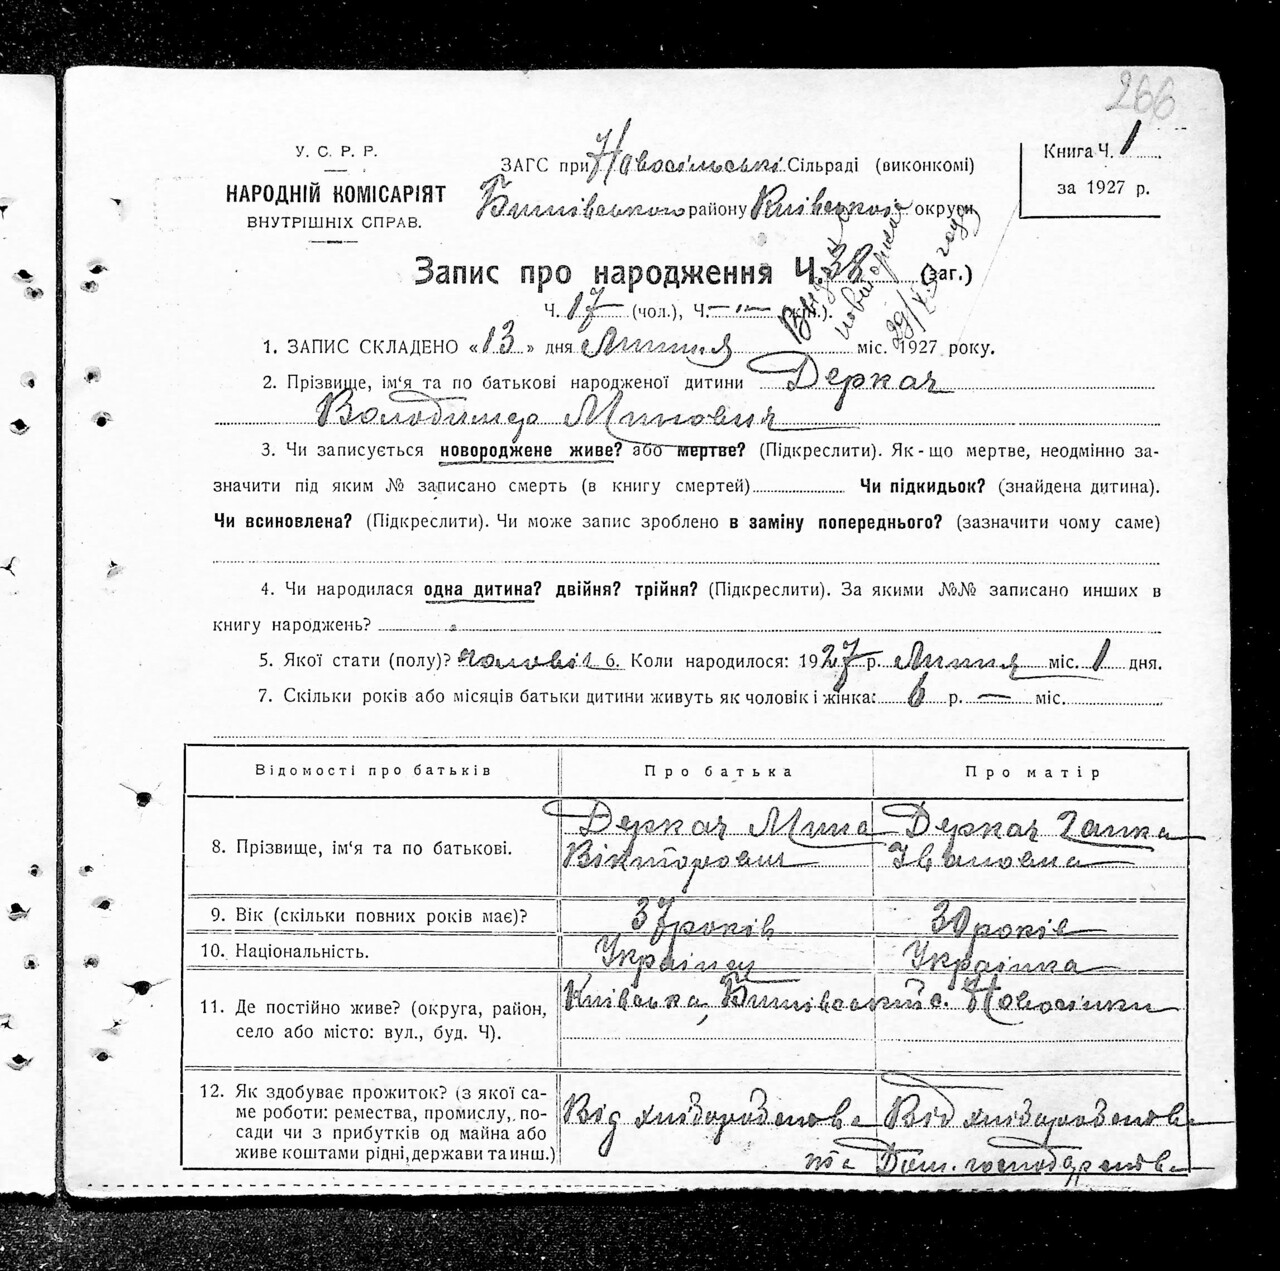 266
У. С. Р. Р.
НАРОДНІЙ КОМІСАРІЯТ
ВНУТРІШНІХ СПРАВ.
ЗАГС при Новосільські Сільраді (виконкомі)
району Київської округи
Книга Ч. 1
за 1927 р.
Запис про народження Ч. 38 (заг.)
Ч. 17 (чол.), Ч. — (жін.).
1. ЗАПИС СКЛАДЕНО «13» дня Липня міс. 1927 року.
2. Прізвище, ім‘я та по батькові народженої дитини Деркач
Володимир Минович
3. Чи записується новороджене живе? або мертве? (Підкреслити). Як-що мертве, неодмінно за-
значити під яким № записано смерть (в книгу смертей) Чи підкидьок? (знайдена дитина).
Чи всиновлена? (Підкреслити). Чи може запис зроблено в заміну попереднього? (зазначити чому саме)
4. Чи народилася одна дитина? двійня? трійня? (Підкреслити). За якими №№ записано инших в
книгу народжень?
5. Якої стати (полу)? чоловіч 6. Коли народилося: 1927 р. Липня міс. 1 дня.
7. Скільки років або місяців батьки дитини живуть як чоловік і жінка: 6 р. — міс.
Відомості про батьків Про батька Про матір
8. Прізвище, ім‘я та по батькові. Деркач Мина Вікторович Деркач Ганна Івановна
9. Вік (скільки повних років має)? 37 років 30 років
10. Національність. Українец Українка
11. Де постійно живе? (округа, район,
село або місто: вул., буд. Ч).
Київська, с. Новосілки
12. Як здобуває прожиток? (з якої са-
ме роботи: ремества, промислу, по-
сади чи з прибутків од майна або
живе коштами рідні, держави та инш.)
Від хліборобства Від хліборобства
та Дом. господарства